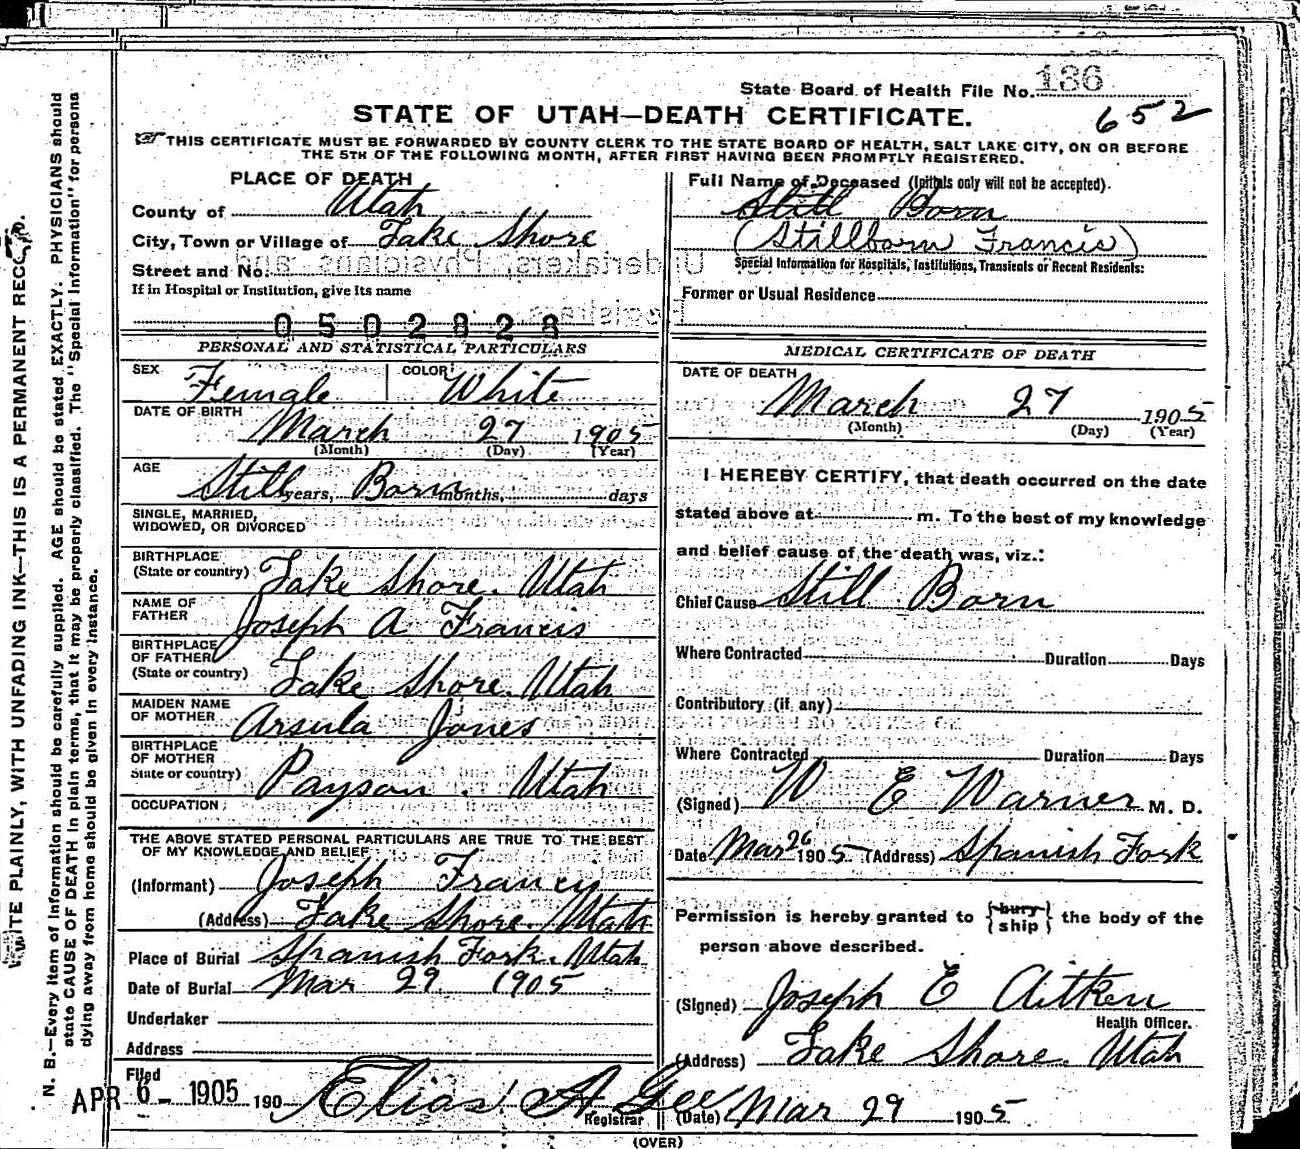 State Board of Health File No. 136
652
STATE OF UTAH—DEATH CERTIFICATE.
THIS CERTIFICATE MUST BE FORWARDED BY COUNTY CLERK TO THE STATE BOARD OF HEALTH, SALT LAKE CITY, ON OR BEFORE
THE 5TH OF THE FOLLOWING MONTH, AFTER FIRST HAVING BEEN PROMPTLY REGISTERED.
PLACE OF DEATH
County of Utah
City, Town or Village of Lake Shore
Street and No.
If in Hospital or Institution, give its name
0502828
Full Name of Deceased (Initials only will not be accepted).
Still Born
(Stillborn Francis)
Special Information for Hospitals, Institutions, Transients or Recent Residents:
Former or Usual Residence
PERSONAL AND STATISTICAL PARTICULARS
SEX Female COLOR White
DATE OF BIRTH
March 27 1905
(Month) (Day) (Year)
AGE
Still years, Born months, days
SINGLE, MARRIED,
WIDOWED, OR DIVORCED
BIRTHPLACE
(State or country) Lake Shore. Utah
NAME OF
FATHER Joseph A Francis
BIRTHPLACE
OF FATHER
(State or country) Lake Shore. Utah
MAIDEN NAME
OF MOTHER Arsula Jones
BIRTHPLACE
OF MOTHER
State or country) Payson. Utah
OCCUPATION
THE ABOVE STATED PERSONAL PARTICULARS ARE TRUE TO THE BEST
OF MY KNOWLEDGE AND BELIEF
(Informant) Joseph Francis
(Address) Lake Shore. Utah
Place of Burial Spanish Fork. Utah
Date of Burial Mar 29 1905
Undertaker
Address
Filed
APR 6- 1905 190 Elias A Gee
Registrar
MEDICAL CERTIFICATE OF DEATH
DATE OF DEATH
March 27 1905
(Month) (Day) (Year)
I HEREBY CERTIFY, that death occurred on the date
stated above at m. To the best of my knowledge
and belief cause of the death was, viz.:
Chief Cause Still Born
Where Contracted Duration Days
Contributory (if any)
Where Contracted Duration Days
(Signed) W E Warner M. D.
Date Mar 26 1905 (Address) Spanish Fork
Permission is hereby granted to {bury ship} the body of the
person above described.
(Signed) Joseph E Aitken
Health Officer.
(Address) Lake Shore. Utah
(Date) Mar 29 1905
(OVER)
WRITE PLAINLY, WITH UNFADING INK—THIS IS A PERMANENT RECORD.
N. B.—Every item of information should be carefully supplied. AGE should be stated EXACTLY. PHYSICIANS should
state CAUSE OF DEATH in plain terms, that it may be properly classified. The "Special Information" for persons
dying away from home should be given in every instance.